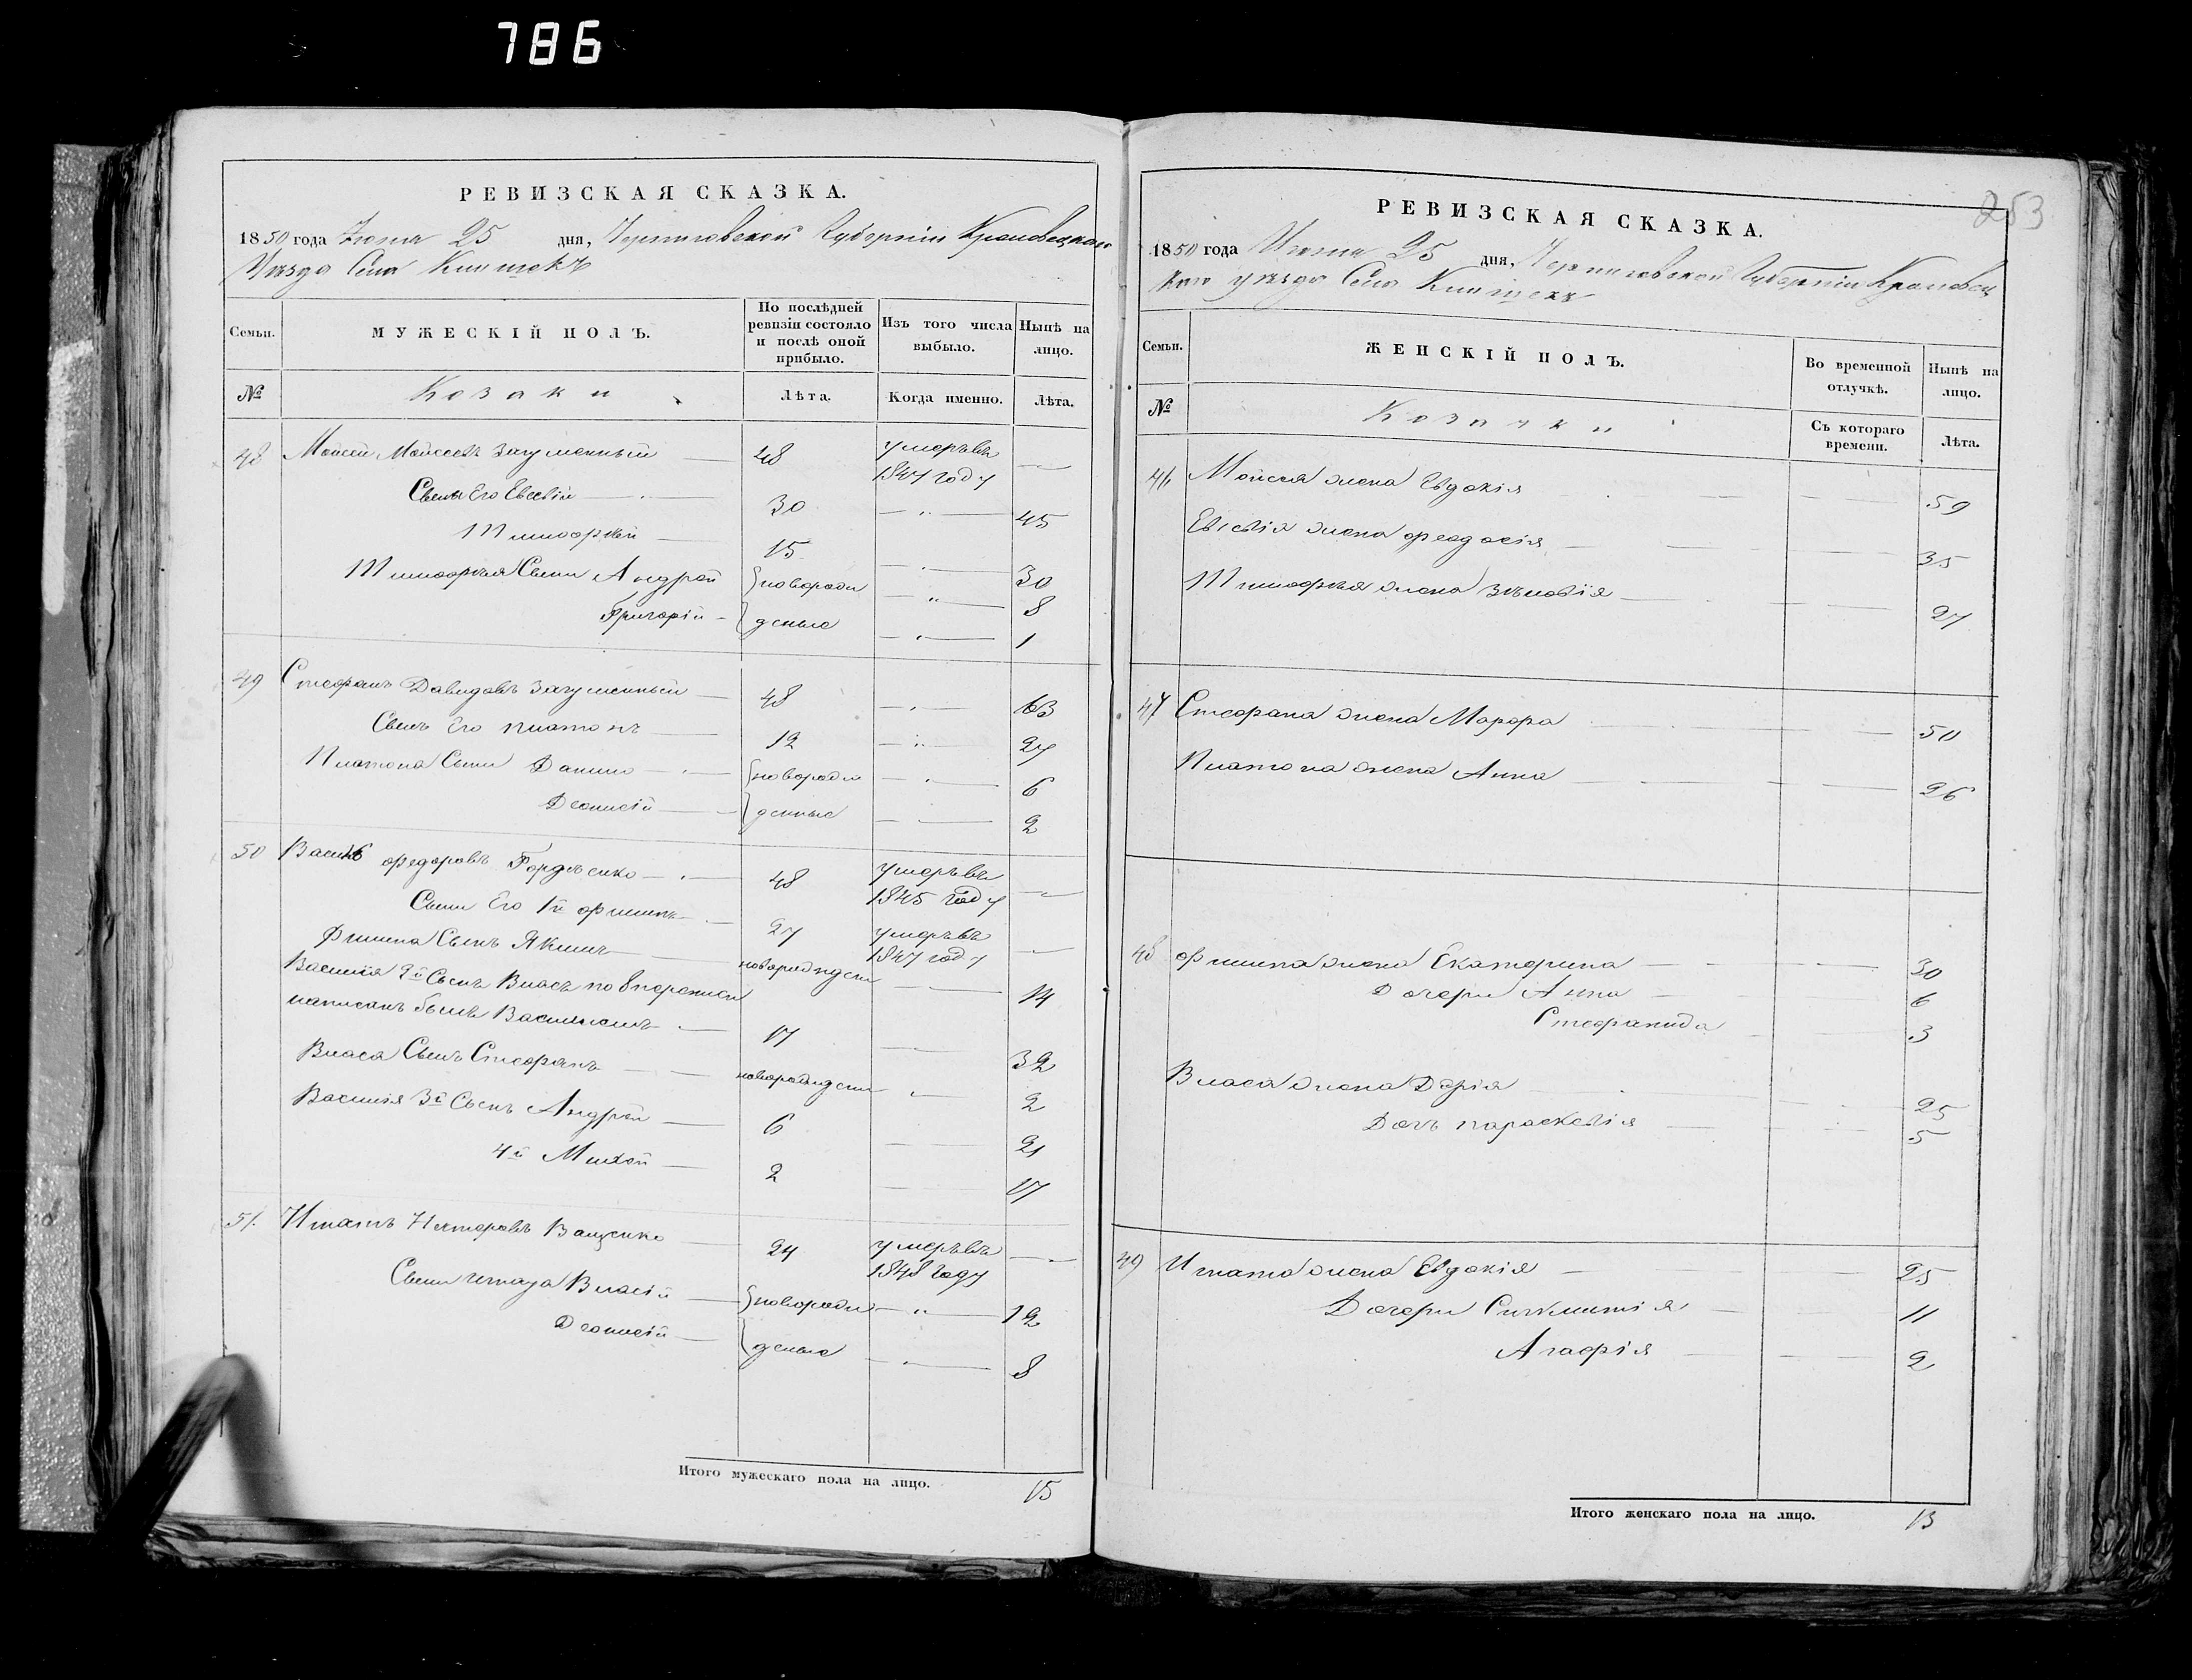 786
РЕВИЗСКАЯ СКАЗКА.
1850 года Июня 25 дня, Черниговской Губерніи Кролевецкаго
Уѣзда Села Клишекъ
Семьи. МУЖЕСКІЙ ПОЛЪ. По послѣдней ревизіи состояло и послѣ оной прибыло. Изъ того числа выбыло. Нынѣ на лицо.
№ Козаки Лѣта. Когда именно. Лѣта.
48 Мойсей Мойсеевъ Загуменный 48 умеръ въ 1847 году
Сынъ Его Евсевій 30 45
Тимофей 15 30
Тимофея Сыны Андрей новорож 8
Григорій денные 1
49 Стефанъ Давидовъ Загуменный 48 63
Сынъ Его Платонъ 12 27
Платона Сыны Данило новорож 6
Деонисій денные 2
50 Василій Федоровъ Гордѣенко 48 умеръ въ 1845 году
Сыны Его 1й Филипъ 27 умеръ въ 1847 году
Филипа Сынъ Якимъ новорожден 14
Василія 2й Сынъ Власъ по 8 переписи
написанъ былъ Василіемъ 17 32
Власа Сынъ Стефанъ новорожден 2
Василія 3й Сынъ Андрей 6 21
4й Михей 2 17
51. Игнатъ Нестеровъ Ващенко 24 умеръ въ 1848 году
Сыны Игната Власій новорож 12
Деонисій денные 8
Итого мужескаго пола на лицо. 15
253
РЕВИЗСКАЯ СКАЗКА.
1850 года Июня 25 дня, Черниговской Губерніи Кролевец
каго уѣзда Села Клишекъ
Семьи. ЖЕНСКІЙ ПОЛЪ. Во временной отлучкѣ. Нынѣ на лицо.
№ Козачки Съ котораго времени. Лѣта.
46 Мойсея жена Евдокія 59
Евсевія жена Феодосія 35
Тимофея жена Зѣновія 27
47 Стефана жена Марфа 50
Платона жена Анна 26
48 Филипа жена Екатерина 30
Дочери Анна 6
Стефанида 3
Власа жена Дарія 25
Дочь Параскевія 5
49 Игната жена Евдокія 25
Дочери 11
Агафія 2
Итого женскаго пола на лицо. 13